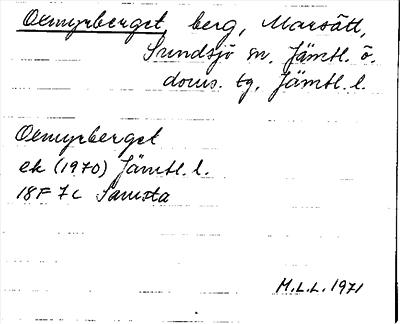 Oxmyrberget, berg, Marsätt,
Sundsjö sn, Jämtl. ö.
doms. tg, Jämtl. l.
Oxmyrberget
ek (1970) Jämtl. l.
18F 7c Samsta
M.L.L. 1971